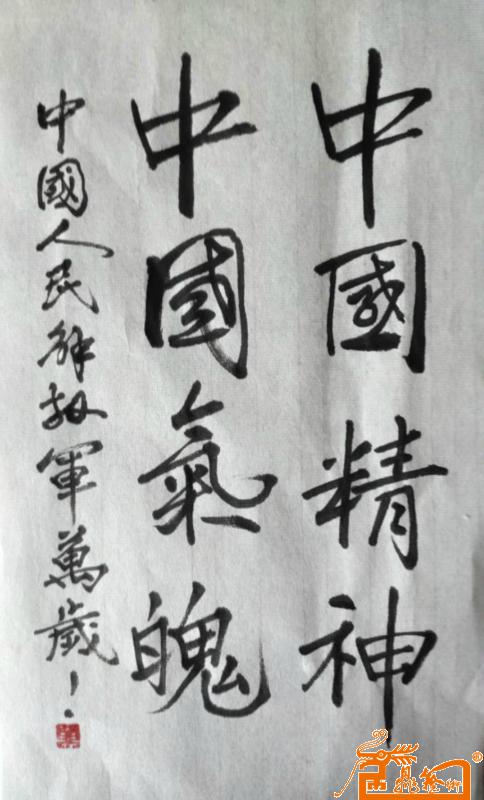 中國精神
中國氣魄
中國人民解放軍萬歲！